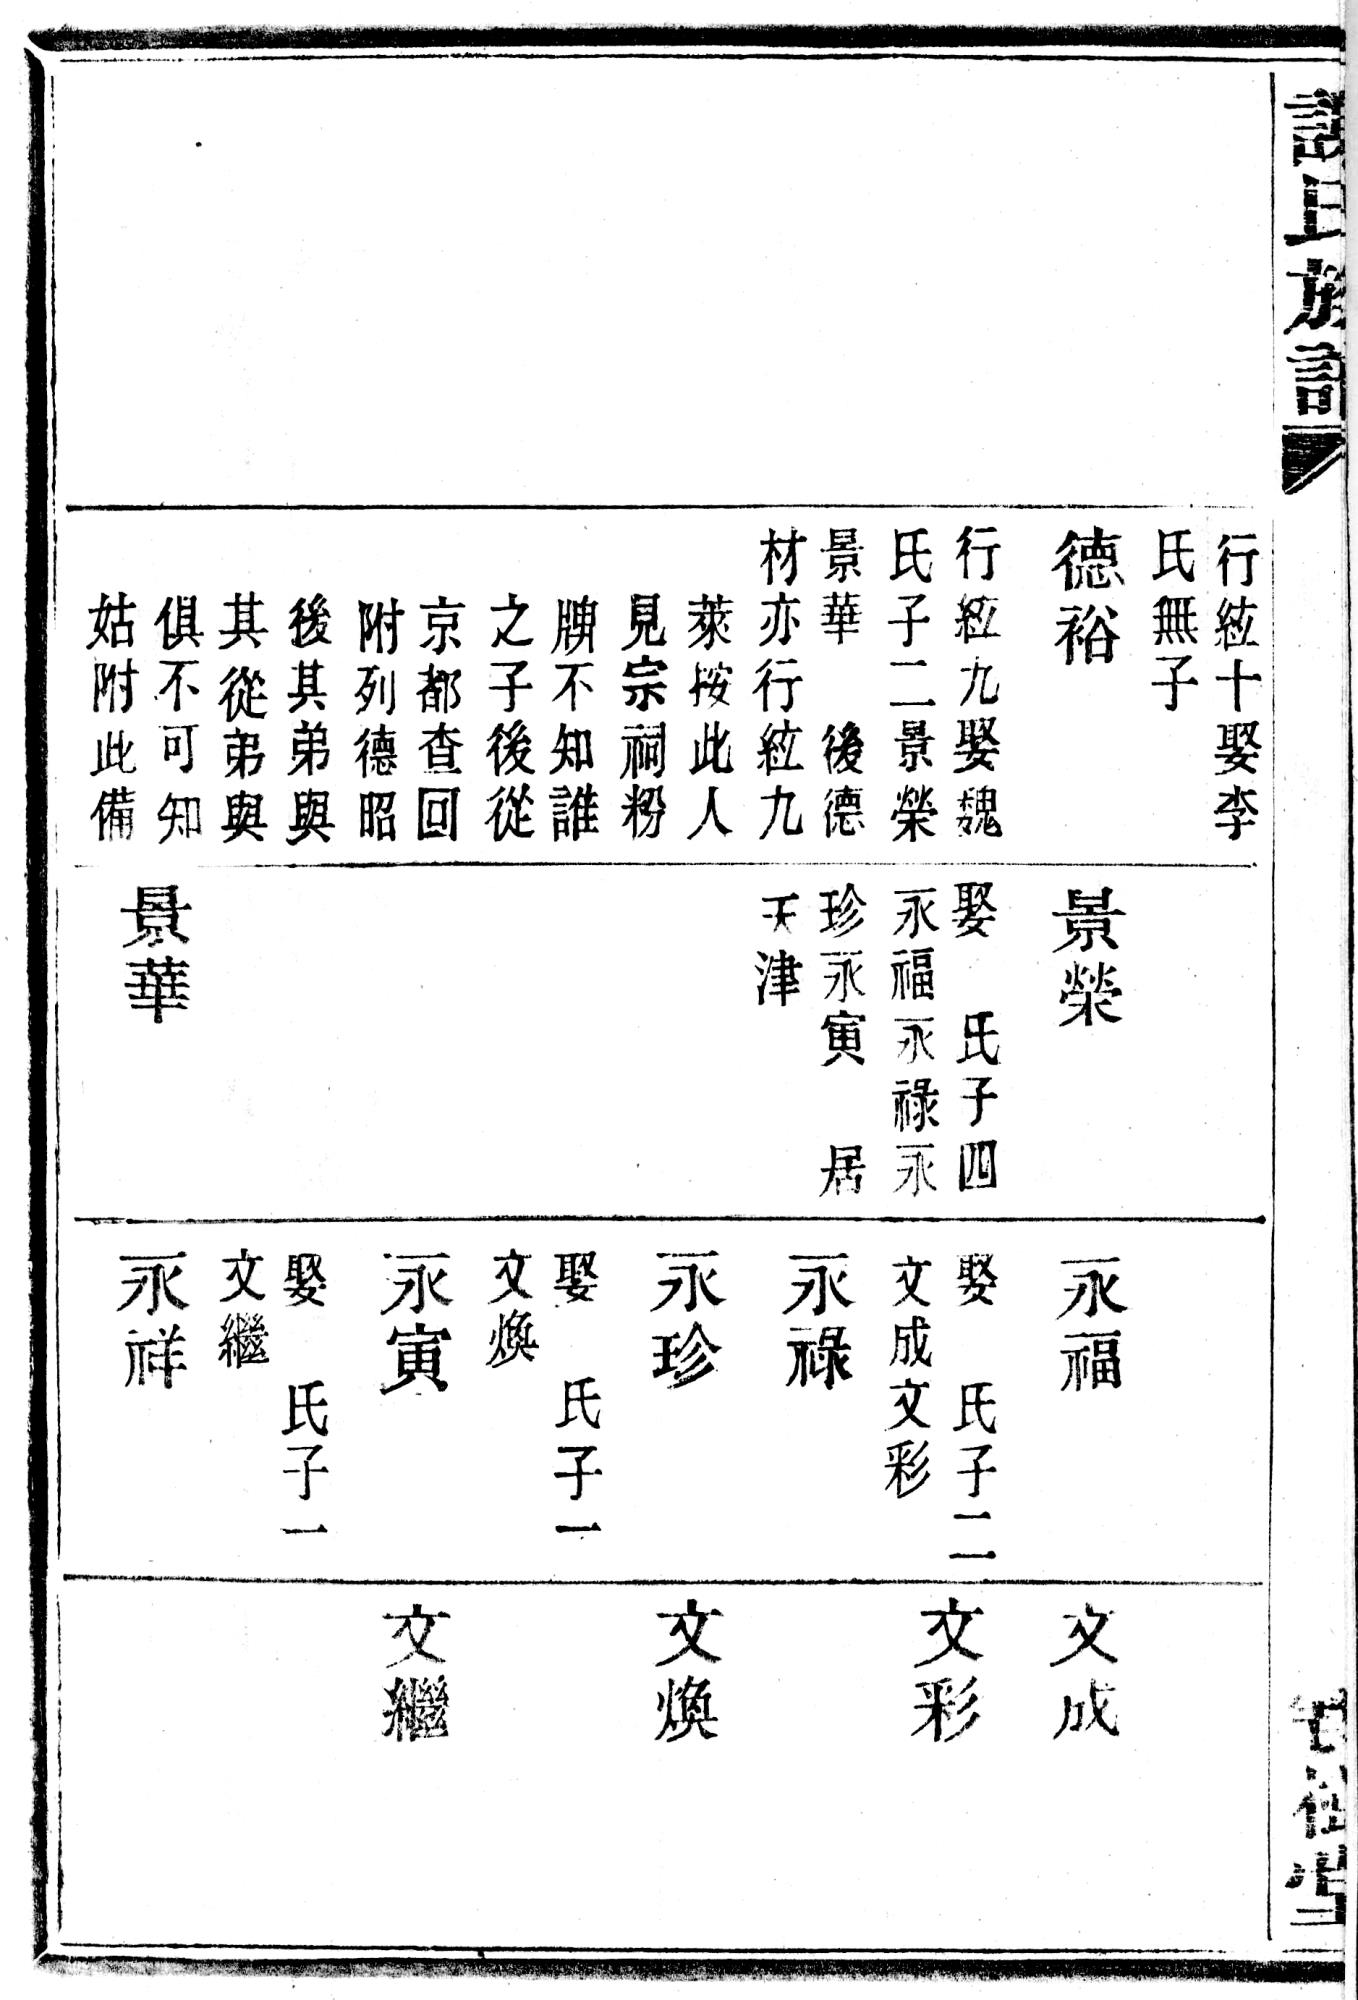 氏族譜
行絃十娶李
氏無子
德裕
行絃九娶魏
氏子二景榮
景華　後德
材亦行絃九
萊按此人
見宗祠粉
牌不知誰
之子後從
京都查回
附列德昭
後其弟與
其從弟與
俱不可知
姑附此備
景榮
娶　氏子四
永福永祿永
珍永寅　居
天津
景華
永福
娶　氏子二
文成文彩
永祿
永珍
娶　氏子一
文煥
永寅
娶　氏子一
文繼
永祥
文成
文彩
文煥
文繼
堂